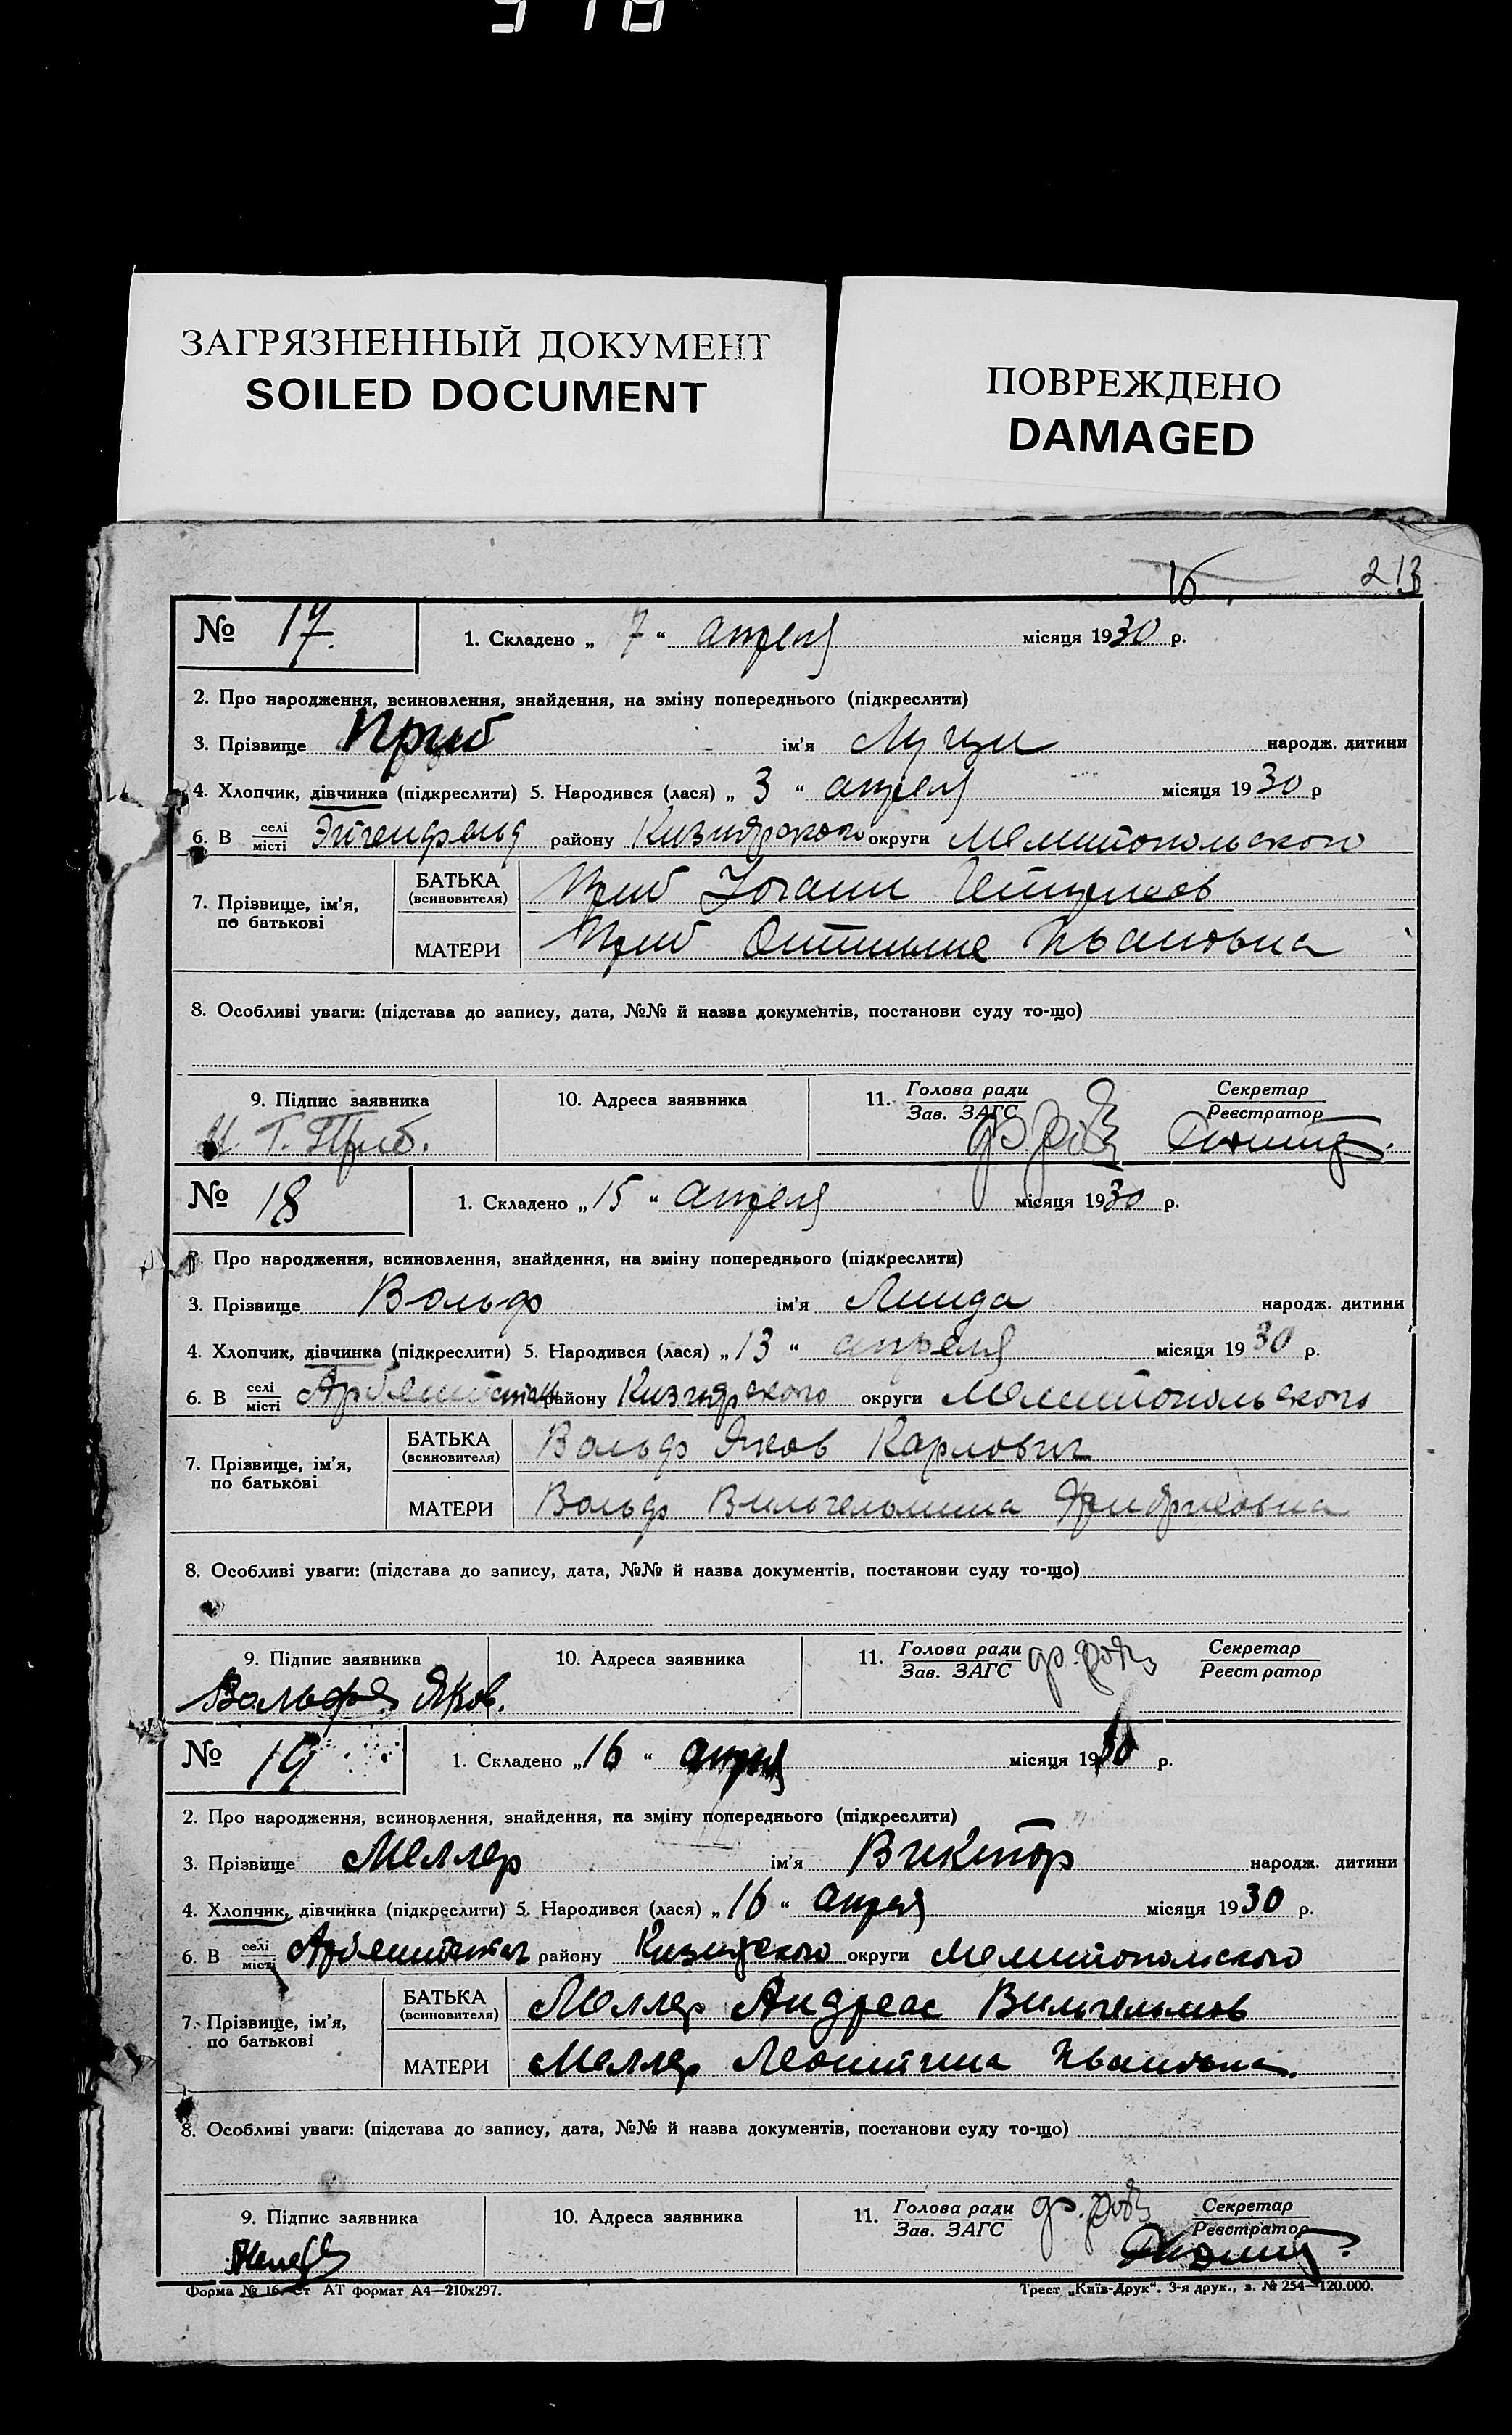 ЗАГРЯЗНЕННЫЙ ДОКУМЕНТ
SOILED DOCUMENT
ПОВРЕЖДЕНО
DAMAGED
213
№ 17. 1. Складено „ 7 “ апреля місяця 1930 р.
2. Про народження, всиновлення, знайдення, на зміну попереднього (підкреслити)
3. Прізвище Приб ім'я Луци народж. дитини
4. Хлопчик, дівчинка (підкреслити) 5. Народився (лася) „ 3 “ апреля місяця 1930 р
6. В селі/місті Эйгенфельд району Кизиярского округи Мелитопольского
7. Прізвище, ім'я, по батькові БАТЬКА (всиновителя) Приб Иоганн
МАТЕРИ Приб Оттилие Ивановна
8. Особливі уваги: (підстава до запису, дата, №№ й назва документів, постанови суду то-що)
9. Підпис заявника 10. Адреса заявника 11. Голова ради/Зав. ЗАГС Секретар/Реєстратор
И. Г. Приб.
№ 18 1. Складено „ 15 “ апреля місяця 1930 р.
2. Про народження, всиновлення, знайдення, на зміну попереднього (підкреслити)
3. Прізвище Вольф ім'я Линда народж. дитини
4. Хлопчик, дівчинка (підкреслити) 5. Народився (лася) „ 13 “ апреля місяця 1930 р.
6. В селі/місті району Кизиярского округи Мелитопольского
7. Прізвище, ім'я, по батькові БАТЬКА (всиновителя) Вольф Яков Карлович
МАТЕРИ Вольф Вильгельмина Фридриховна
8. Особливі уваги: (підстава до запису, дата, №№ й назва документів, постанови суду то-що)
9. Підпис заявника 10. Адреса заявника 11. Голова ради/Зав. ЗАГС Секретар/Реєстратор
Вольф Яков.
№ 19 1. Складено „ 16 “ апреля місяця 1930 р.
2. Про народження, всиновлення, знайдення, на зміну попереднього (підкреслити)
3. Прізвище Меллер ім'я Виктор народж. дитини
4. Хлопчик, дівчинка (підкреслити) 5. Народився (лася) „ 16 “ апреля місяця 1930 р.
6. В селі/місті району Кизиярского округи Мелитопольского
7. Прізвище, ім'я, по батькові БАТЬКА (всиновителя) Меллер Андреас Вильгельмов
МАТЕРИ Меллер Леонтина Ивановна.
8. Особливі уваги: (підстава до запису, дата, №№ й назва документів, постанови суду то-що)
9. Підпис заявника 10. Адреса заявника 11. Голова ради/Зав. ЗАГС Секретар/Реєстратор
Форма № 16. Ст АТ формат А4—210х297. Трест „Київ-Друк“. 3-я друк., з. № 254—120.000.